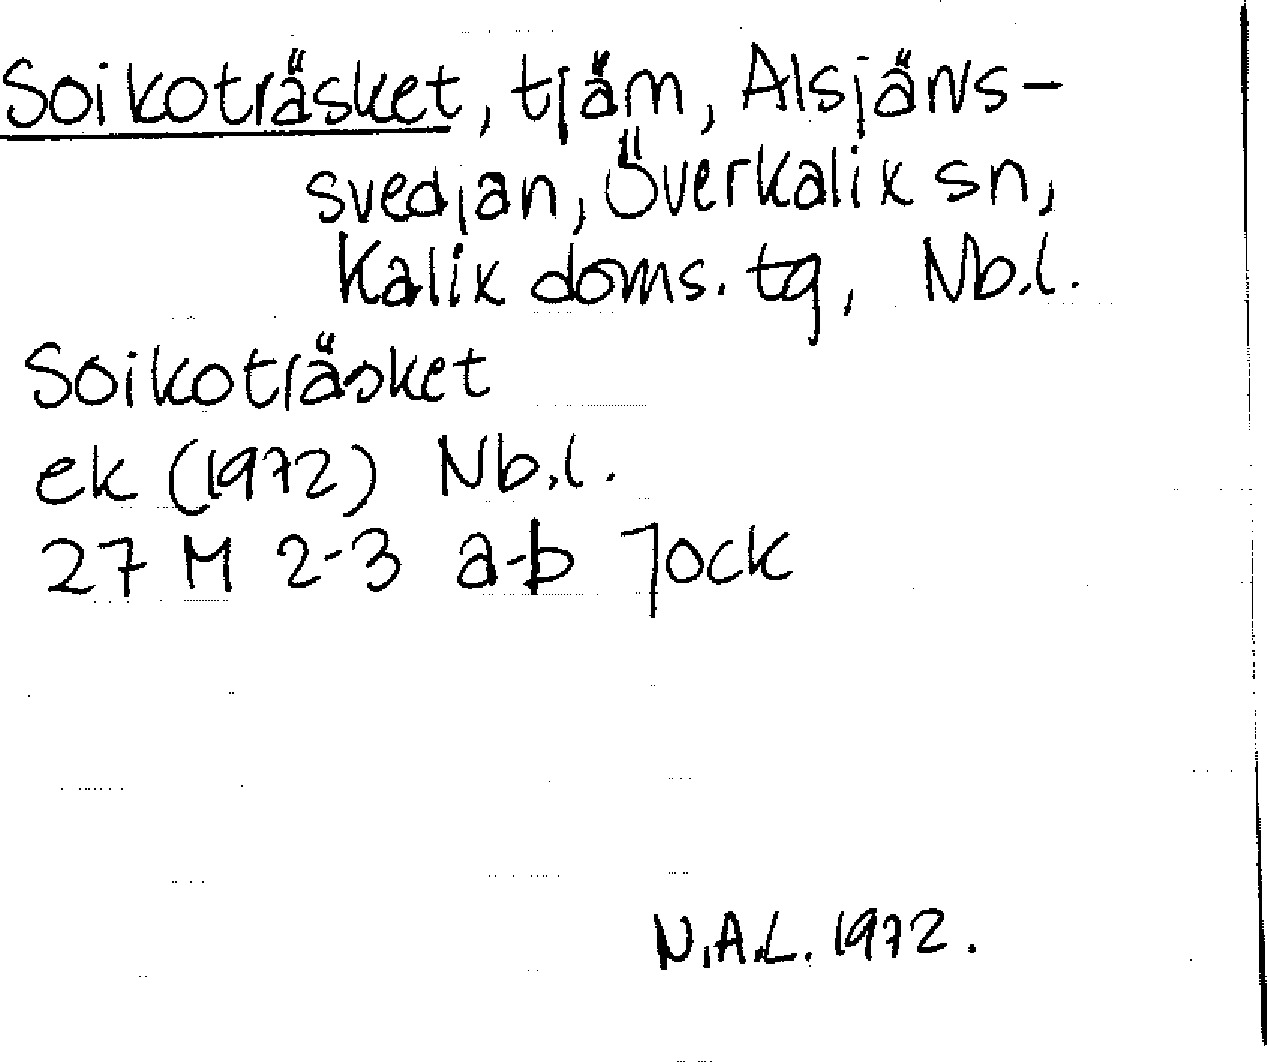 Soikoträsket, tjäm, Alsjärvs-
svedjan, Överkalix sn,
Kalix doms. tg, Nb.l.
Soikoträsket
ek (1972) Nb.l.
27 M 2-3 a-b Jock
N.A.L. 1972.